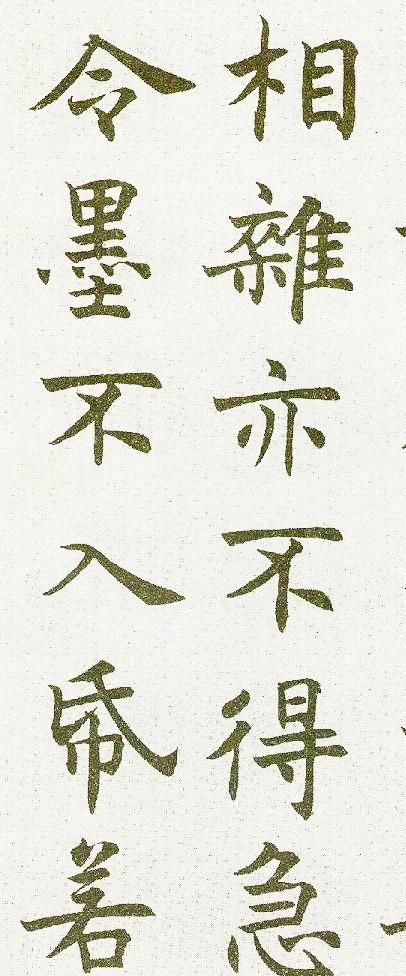 相雜亦不得急
令墨不入帋若